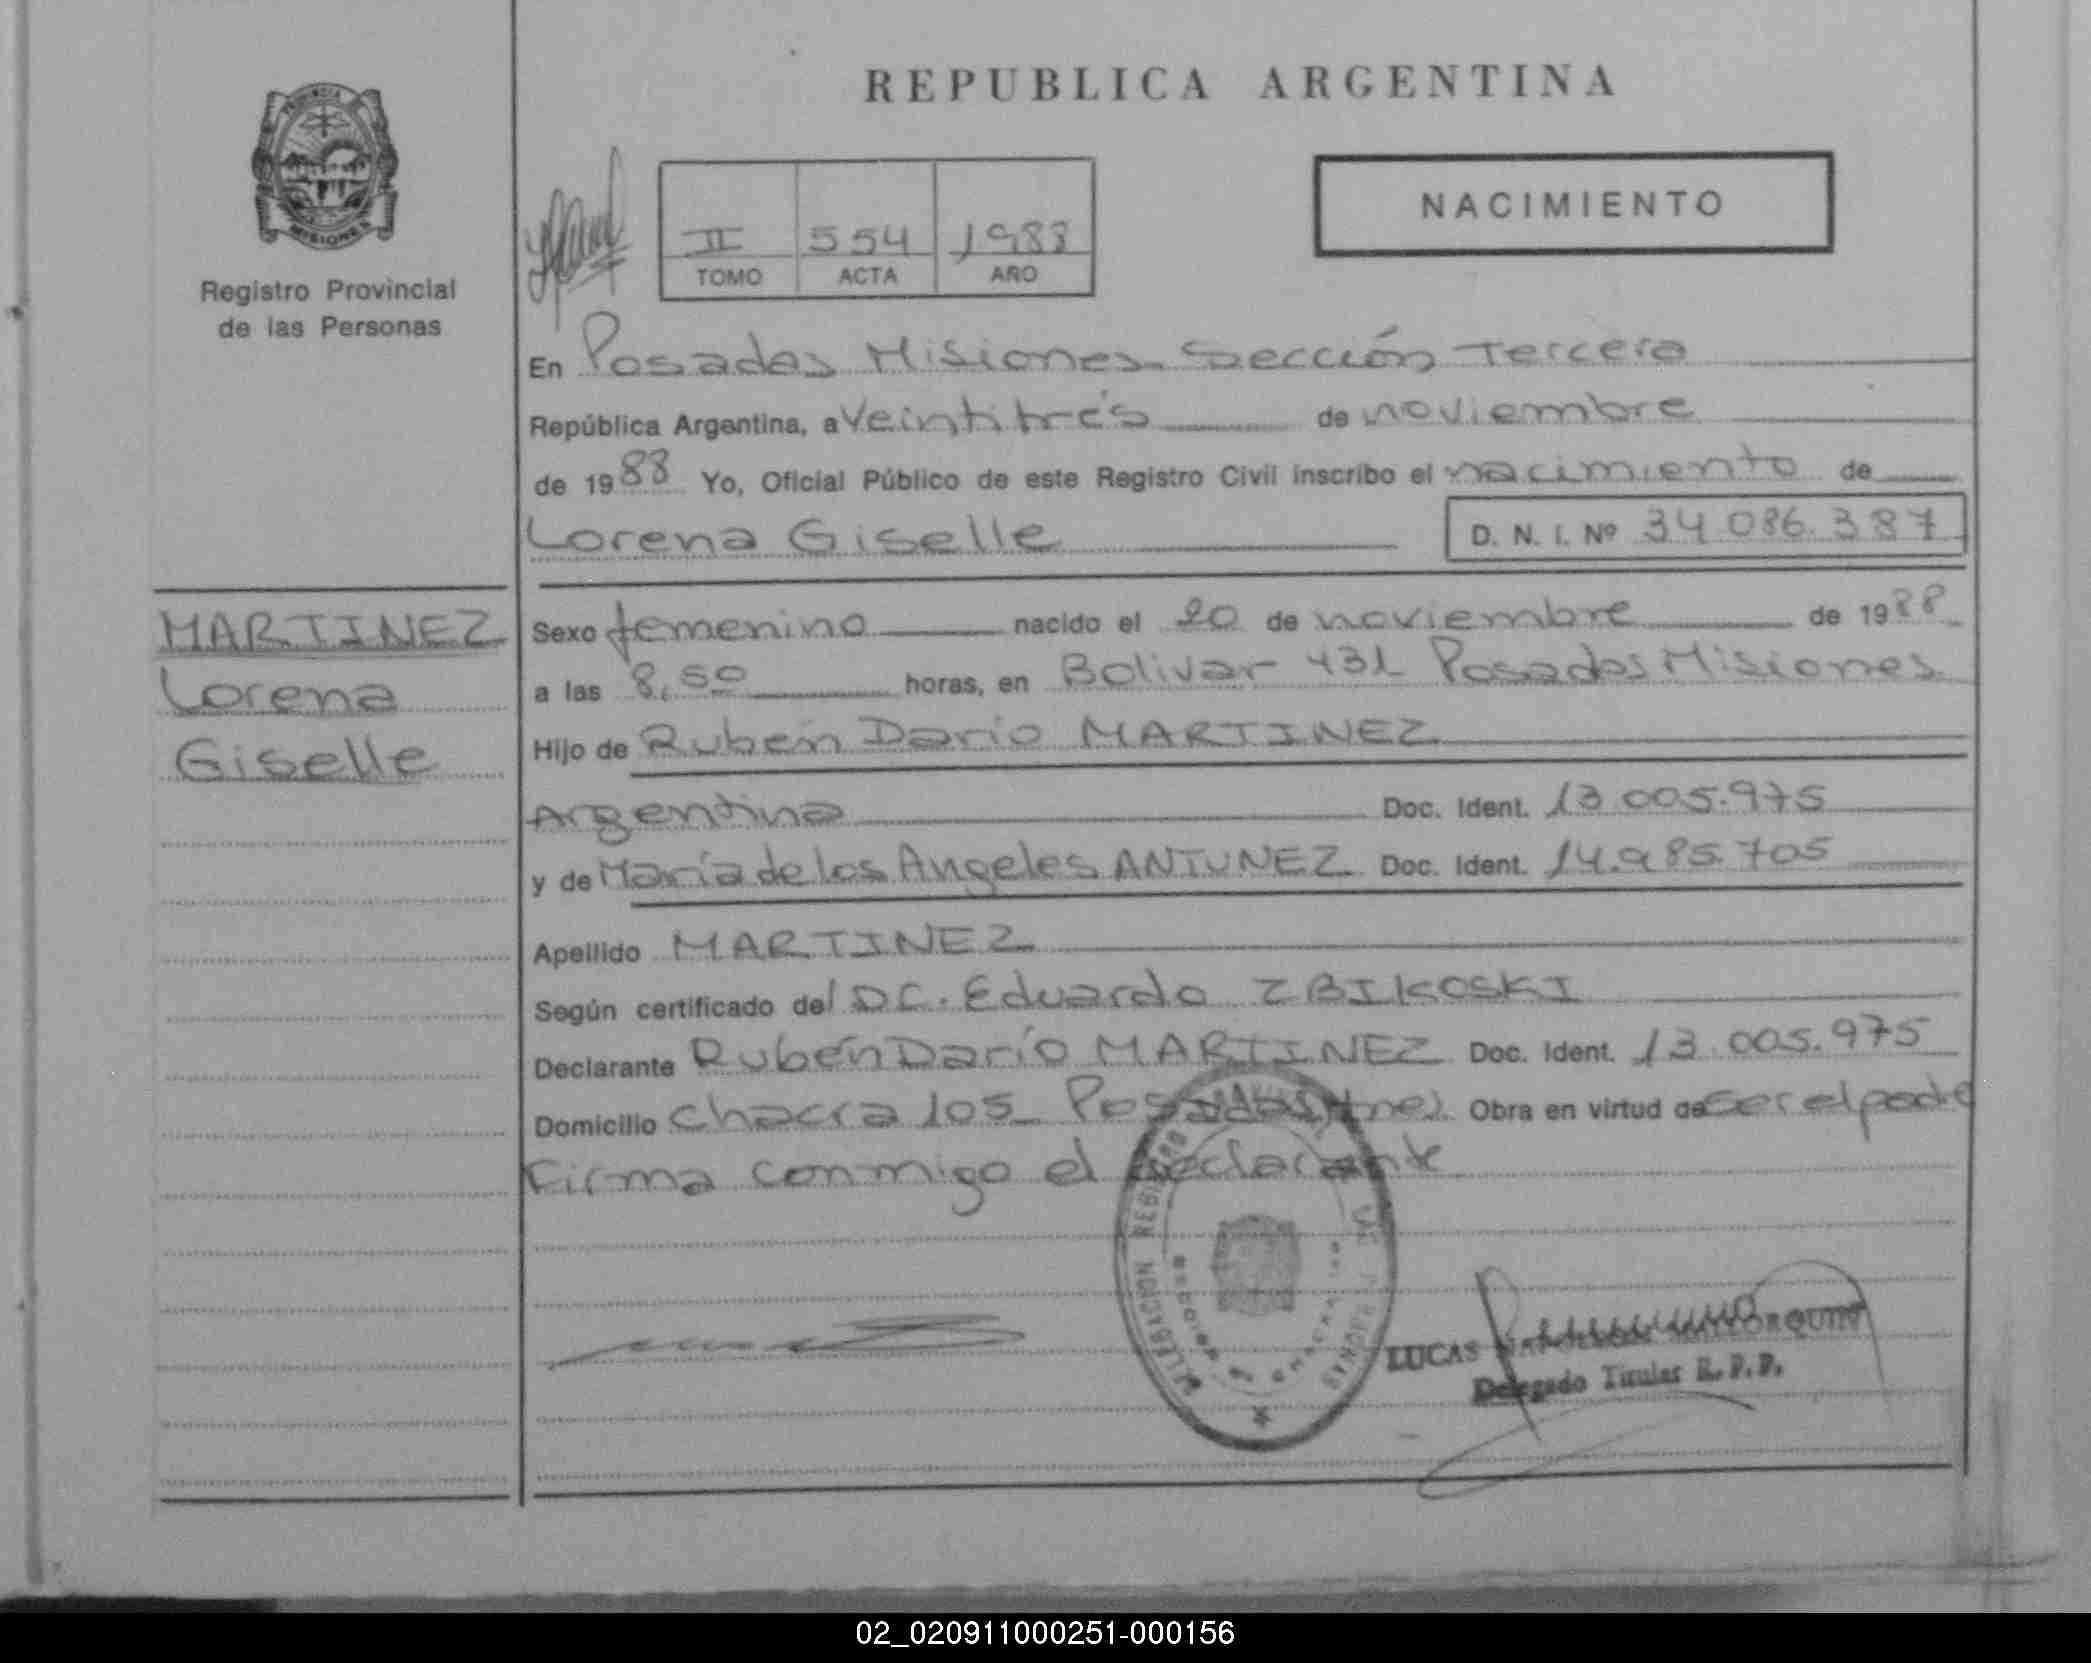 REPUBLICA ARGENTINA
PROVINCIA
MISIONES
Registro Provincial
de las Personas
NACIMIENTO
II 554 1988
TOMO ACTA AÑO
En Posadas Misiones Sección Tercera
República Argentina, a veintitrés de noviembre
de 1988 Yo, Oficial Público de este Registro Civil inscribo el nacimiento de
Lorena Giselle D. N. I. Nº 34.086.387
MARTINEZ
Lorena
Giselle
Sexo femenino nacido el 20 de noviembre de 1988
a las 8,50 horas, en Bolivar 431 Posadas Misiones
Hijo de Rubén Darío MARTINEZ
Argentina Doc. Ident. 13.005.975
y de María de los Angeles ANTUNEZ Doc. Ident. 14.985.705
Apellido MARTINEZ
Según certificado del DC. Eduardo ZBIKOSKI
Declarante Rubén Darío MARTINEZ Doc. Ident. 13.005.975
Domicilio chacra 105 Posadas Obra en virtud de ser el padre
Firma conmigo el declarante
DELEGACION REGISTRO LAS PERSONAS
LUCAS
Delegado Titular R. P. P.
02_020911000251-000156